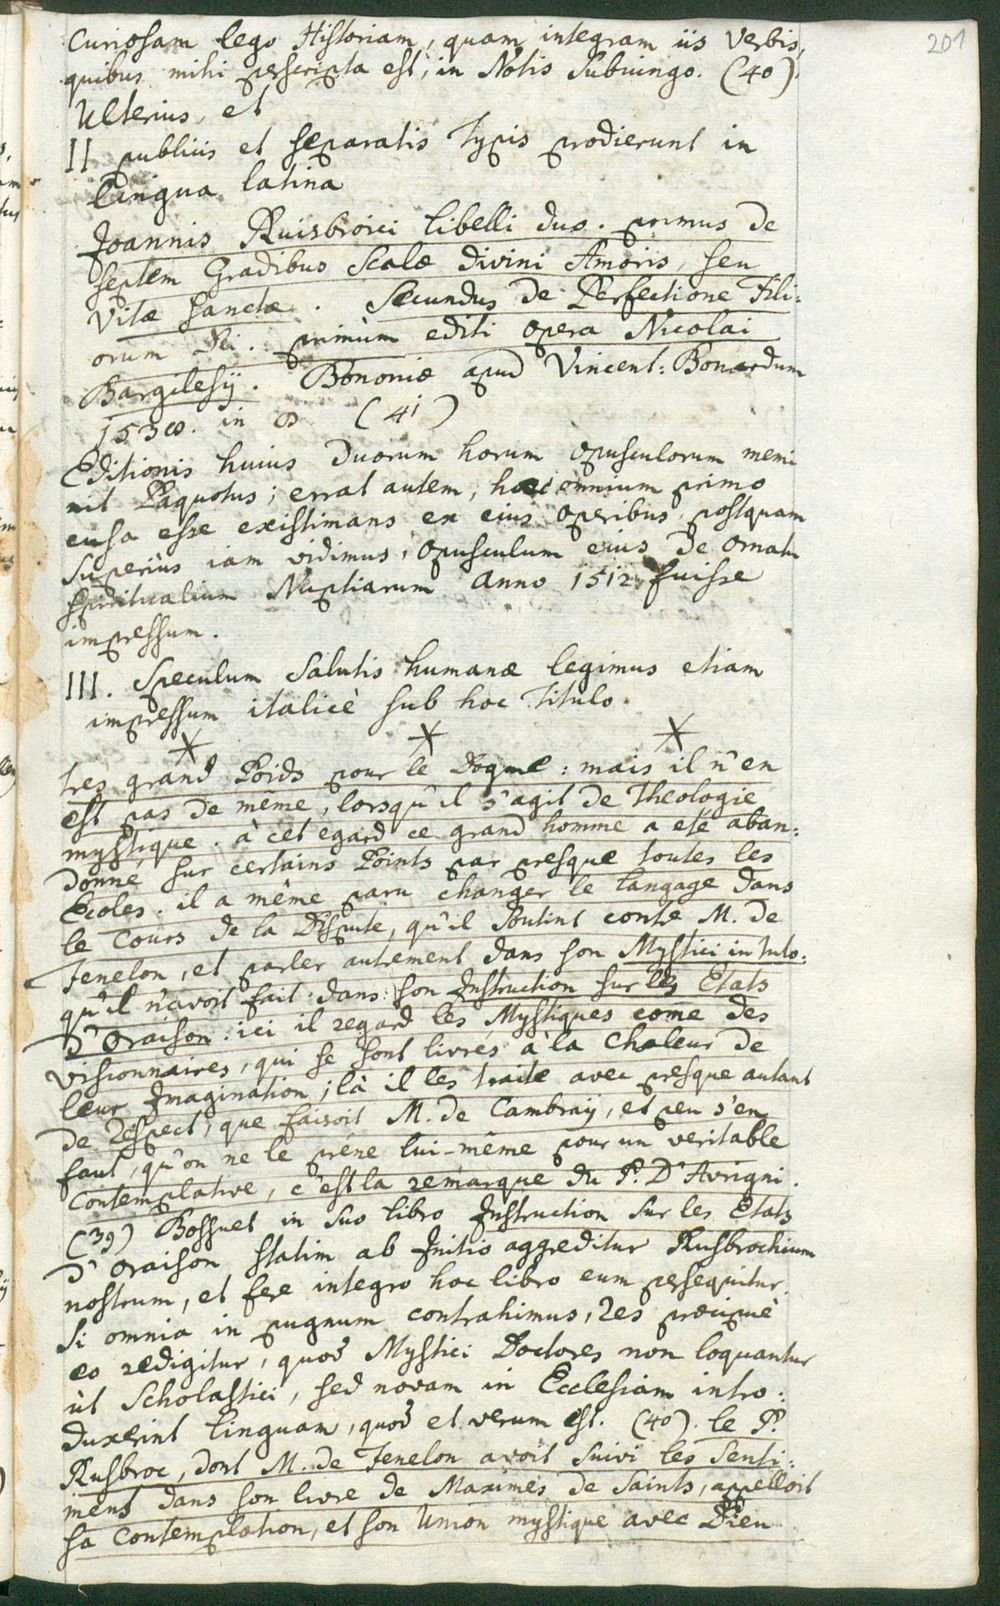 201
Curiosam lego Historiam, quam integram iis Verbis,
quibus mihi perscripta est, in Notis Subiungo. (40)
Ulterius, et
II publicis et separatis Typis prodierunt in
Lingua latina
Joannis Ruisbroici libelli duo. primus de
septem Gradibus Scalæ divini Amoris, seu
Vitæ sanctæ. Secundus de Perfectione Fili:
orum Dei. primùm editi opera Nicolai
Bargilesij. Bononiæ apud Vincent: Bonardum
1538. in 8 (41)
Editionis huius duorum horum opusculorum memi
nit Paquotus; errat autem, hæc omnium primo
cusa esse existimans ex eius operibus, postquam
superiùs iam vidimus, opusculum eius de ornatu
spiritualium Nuptiarum anno 1512 fuisse
impressum.
III. Speculum Salutis humanæ legimus etiam
impressum italicè sub hoc Titulo.
tres grand Poids pour le Dogme: mais il n'en
est pas de même, lorsqu'il s'agit de Theologie
mystique. à cet egard ce grand homme a eté aban:
donné sur certains Points par presque toutes les
Ecoles. il a même paru changer le langage dans
le Cours de la Dispute, qu'il soutint conte M. de
Fenelon, et parler autrement dans son Mystici in tuto.
qu'il n'avoit fait dans son Instruction sur les Etats
d'Oraison. ici il regard les Mystiques come des
visionnaires, qui se sont livrés à la Chaleur de
leur Imagination; là il les traite avec presque autant
de Respect, que faisoit M. de Cambraÿ, et peu s'en
faut, qu'on ne le prene lui-même pour un veritable
Contemplative, c'est la remarque du P. D'Avrigni.
(39) Bossuet in suo libro Instruction sur les Etats
d'oraison statim ab Initio aggreditur Rusbrochium
nostrum, et fere integro hoc libro eum persequitur.
Si omnia in pugnum contrahimus, res præcipuè
eo redigitur, quod Mystici Doctores non loquantur
ùt Scholastici, sed novam in Ecclesiam intro:
duxerint linguam, quod et verum est. (40). le P.
Rusbroc, dont M. de Fenelon avoit suivi les senti:
ments dans son livre de Maximes de Saints, appelloit
sa Contemplation, et son Union mystique avec Dieu